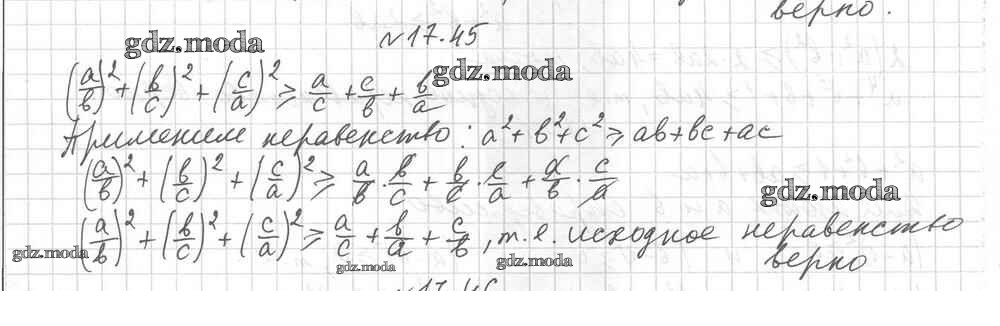 верно.
№17.45
gdz.moda
(a/b)² + (b/c)² + (c/a)² ≥ a/c + c/b + b/a
gdz.moda
Применим неравенство: a² + b² + c² ≥ ab + bc + ac
(a/b)² + (b/c)² + (c/a)² ≥ a/b · b/c + b/c · c/a + a/b · c/a
gdz.moda
(a/b)² + (b/c)² + (c/a)² ≥ a/c + b/a + c/b, т.е. исходное неравенство
верно
gdz.moda
gdz.moda
gdz.moda